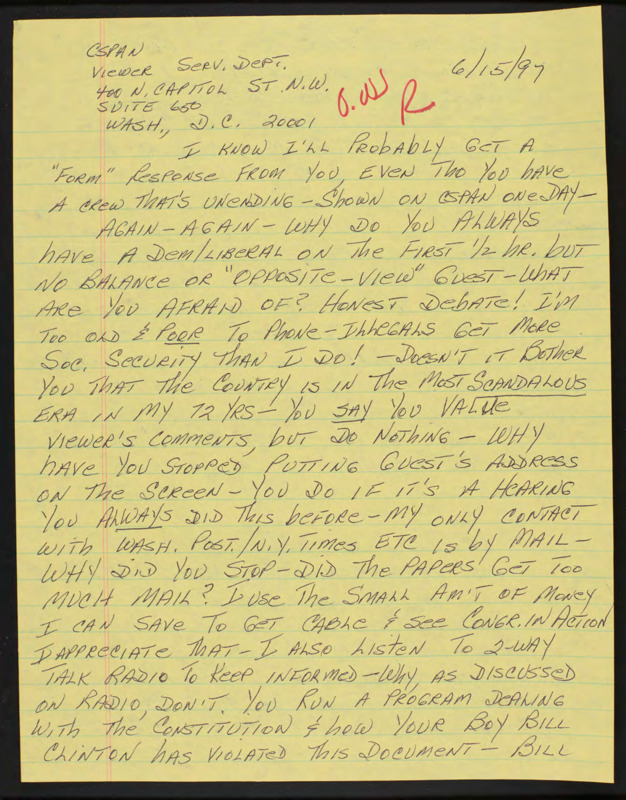 CSPAN
VIEWER SERV. DEPT. 6/15/97
400 N. CAPITOL ST N.W.
SUITE 650
WASH., D.C. 20001
R
I KNOW I'LL PROBABLY GET A
"FORM" RESPONSE FROM YOU, EVEN THO YOU HAVE
A CREW THAT'S UNENDING - SHOWN ON CSPAN ONE DAY -
AGAIN - AGAIN - WHY DO YOU ALWAYS
HAVE A DEM/LIBERAL ON THE FIRST 1/2 HR. BUT
NO BALANCE OR "OPPOSITE - VIEW" GUEST - WHAT
ARE YOU AFRAID OF? HONEST DEBATE! I'M
TOO OLD & POOR TO PHONE - ILLEGALS GET MORE
SOC. SECURITY THAN I DO! - DOESN'T IT BOTHER
YOU THAT THE COUNTRY IS IN THE MOST SCANDALOUS
ERA IN MY 72 YRS - YOU SAY YOU VALUE
VIEWER'S COMMENTS, BUT DO NOTHING - WHY
HAVE YOU STOPPED PUTTING GUEST'S ADDRESS
ON THE SCREEN - YOU DO IF IT'S A HEARING
YOU ALWAYS DID THIS BEFORE - MY ONLY CONTACT
WITH WASH. POST./N.Y. TIMES ETC IS BY MAIL -
WHY DID YOU STOP - DID THE PAPERS GET TOO
MUCH MAIL? I USE THE SMALL AM'T OF MONEY
I CAN SAVE TO GET CABLE & SEE CONGR. IN ACTION
I APPRECIATE THAT - I ALSO LISTEN TO 2-WAY
TALK RADIO TO KEEP INFORMED - WHY, AS DISCUSSED
ON RADIO, DON'T YOU RUN A PROGRAM DEALING
WITH THE CONSTITUTION & HOW YOUR BOY BILL
CLINTON HAS VIOLATED THIS DOCUMENT - BILL